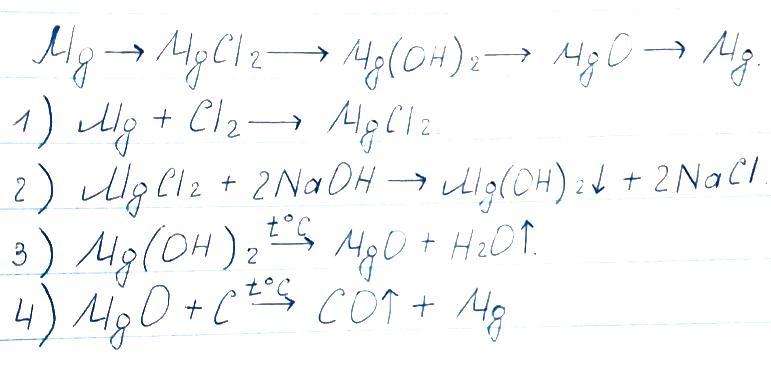 Mg → MgCl₂ → Mg(OH)₂ → MgO → Mg.
1) Mg + Cl₂ → MgCl₂.
2) MgCl₂ + 2NaOH → Mg(OH)₂↓ + 2NaCl.
3) Mg(OH)₂ t°C→ MgO + H₂O↑.
4) MgO + C t°C→ CO↑ + Mg